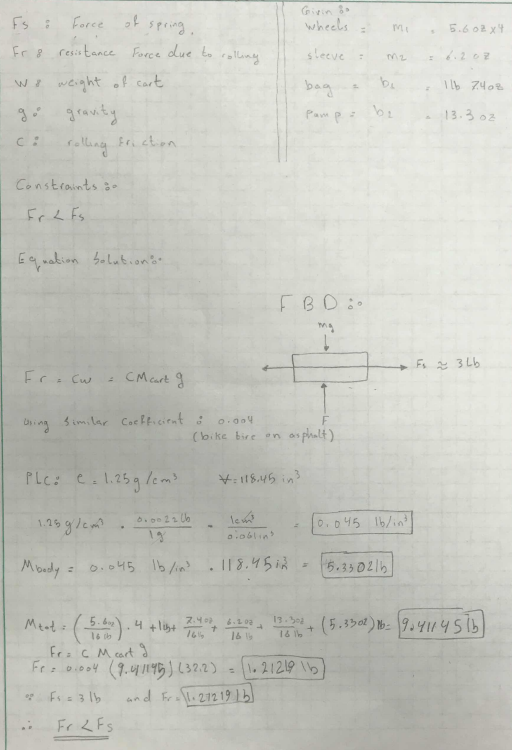 Fs : Force of spring
Fr : resistance Force due to rolling
W : weight of cart
g : gravity
C : rolling friction
Given :
wheels = m1 = 5.6 oz x 4
sleeve = m2 =
bag = b1 = 1lb 7.4oz
Pump = b2 = 13.3 oz
Constraints :
Fr < Fs
Equation Solution :
FBD :
mg
Fs ≈ 3 Lb
F
Fr = Cw = C Mcart g
using similar coefficient : 0.004
(bike tire on asphalt)
PLC : C = 1.25 g/cm³ V = 118.45 in³
1.25 g/cm³ · 0.0022 lb / 1g · 1cm³ / 0.061 in³ = 0.045 lb/in³
Mbody = 0.045 lb/in³ · 118.45 in³ = 5.3302 lb
Mtot = (5.6oz / 16 lb) · 4 + 1lb + 7.4oz / 16lb + 6.2oz / 16 lb + 13.3oz / 16 lb + (5.3302) lb = 9.41145 lb
Fr = C Mcart g
Fr = 0.004 (9.41145) (32.2) = 1.21219 lb
∵ Fs = 3 lb and Fr = 1.21219 lb
∴ Fr < Fs